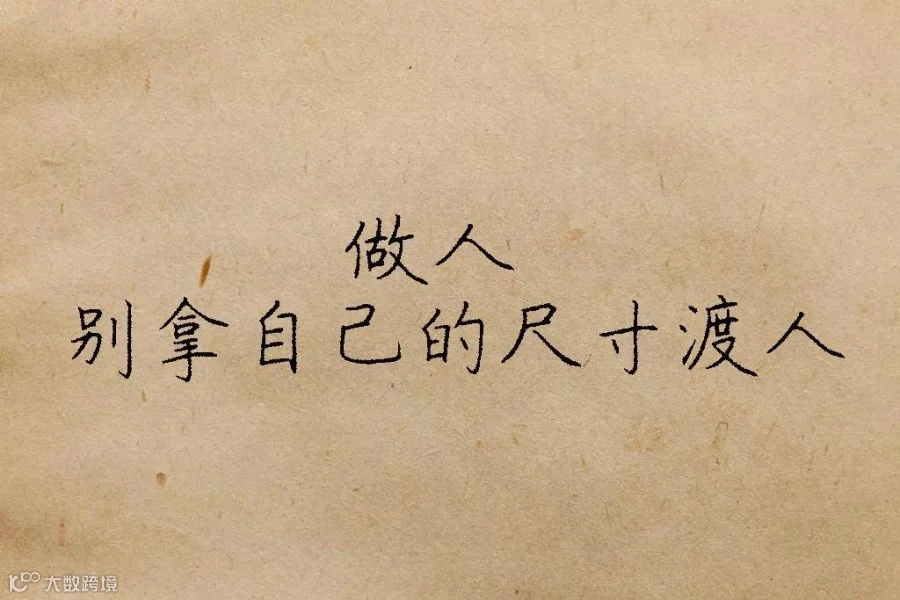 做人
别拿自己的尺寸渡人
大数跨境